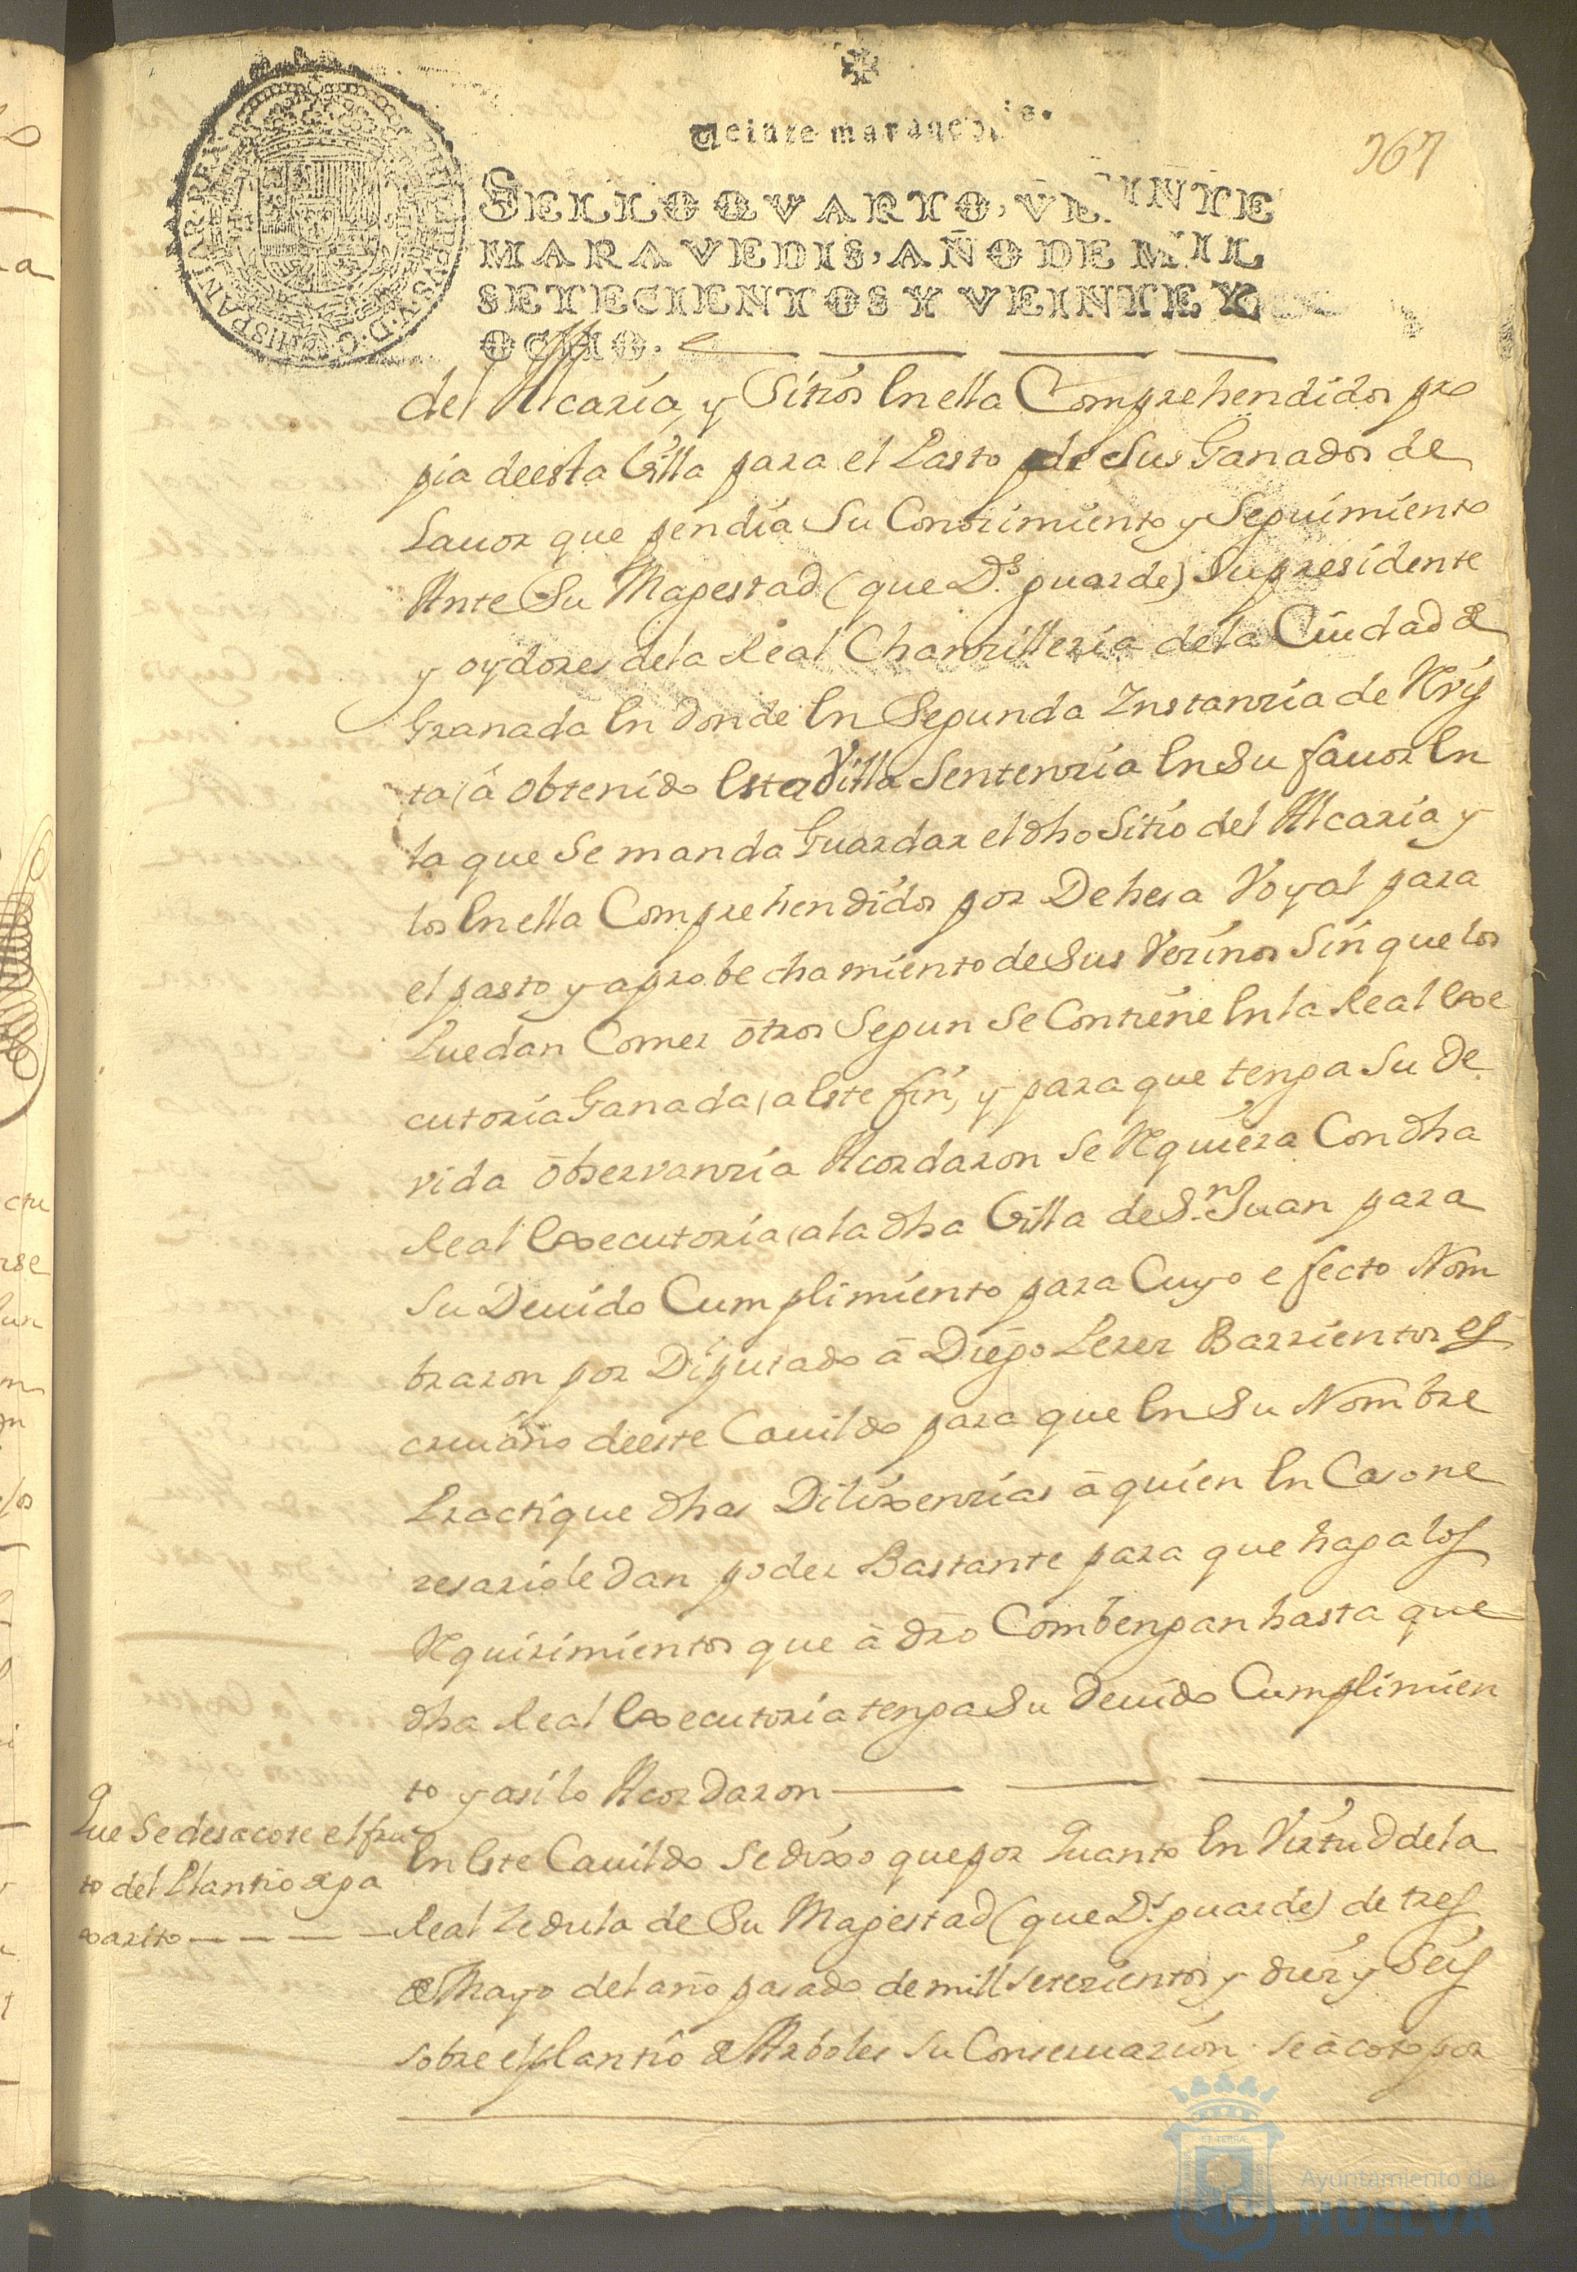 Veinte marauedis.
367
SELLO QVARTO, VEINTE
MARAVEDIS, AÑO DE MIL
SETECIENTOS Y VEINTE Y
OCHO.
del Alcaria, y Sitios en ella Comprehendidos pro
pia deesta Villa para el Pasto de Sus Ganados de
Lauor que pendia Su Conozimiento y Seguimiento
Ante Su Magestad (que Ds. guarde) Su presidente
y oydores de la Real Chanzilleria de la Ciudad de
Granada en donde en Segunda Instanzia de Rvis
ta, a obtenido esta Villa Sentenzia en Su fauor en
la que Se manda Guardar el dho Sitio del Alcaria y
los en ella Comprehendidos por Dehesa Voyal para
el pasto y aprobechamiento de Sus Vezinos Sin que los
Puedan Comer otros Segun Se Contiene en la Real exe
cutoria Ganada, a este fin, y para que tenga Su de
vida observanzia Acordaron Se Requiera Con dha
Real executoria, a la dha Villa de Sn. Juan para
Su Deuido Cumplimiento para Cuyo efecto Nom
braron por Diputado a Diego Perez Barrientos es
criuano deeste Cauildo para que en Su Nombre
Practique dhas Dilixenzias a quien en Caso ne
zesario le dan poder Bastante para que haga los
Requirimientos que a dro Combengan hasta que
dha Real executoria tenga Su deuido Cumplimien
to y asi lo Acordaron
Que Se desacote el fru
to del Plantio de pa
xarito
en este Cauildo Se dixo que por Quanto en Virtud de la
Real Zedula de Su Magestad (que Ds. guarde) de tres
de Mayo del año pasado de mill setezientos y diez y Seis
sobre el plantio de Arboles Su Conseruazion se acoto por
Ayuntamiento de
HUELVA